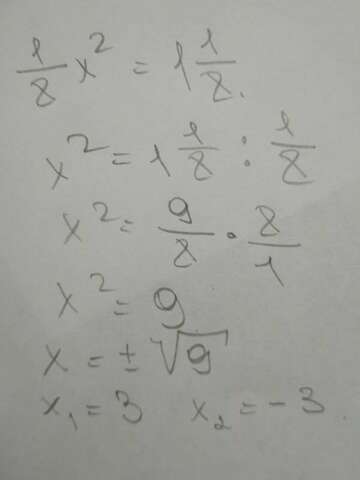 1/8 x² = 1 1/8.
x² = 1 1/8 : 1/8
x² = 9/8 · 8/1
x² = 9
x = ± √9
x₁ = 3 x₂ = - 3